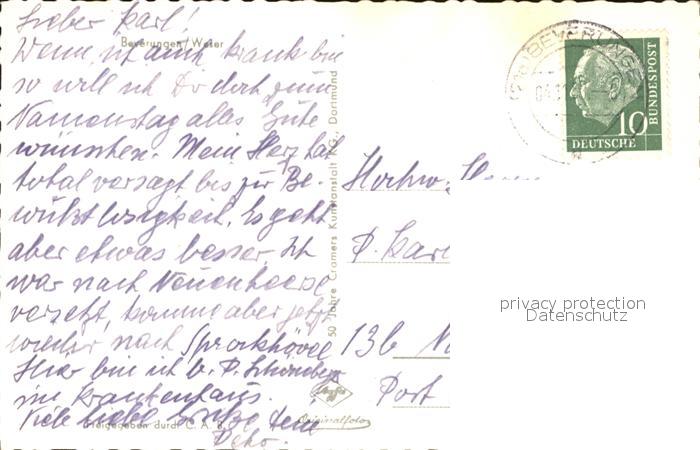 Lieber Karl!
Beverungen/Weser
Wenn ich auch krank bin
so will ich Dir doch zum
Namenstag alles Gute
wünschen. Mein Herz hat
total versagt bis zur Be-
wußtlosigkeit. Es geht
aber etwas besser. Ich
war nach Neuenheerse
versetzt, komme aber jetzt
wieder nach Sprockhövel
Hier bin ich b. P.
im Krankenhaus.
Viele liebe Grüße Dein
Freigegeben durch C. A. B.
50 Jahre Cramers Kunstanstalt KG., Dortmund
Originalfoto
BEVERUNGEN
10
DEUTSCHE
BUNDESPOST
Hochw.
P. Karl
13b N
Post
privacy protection
Datenschutz